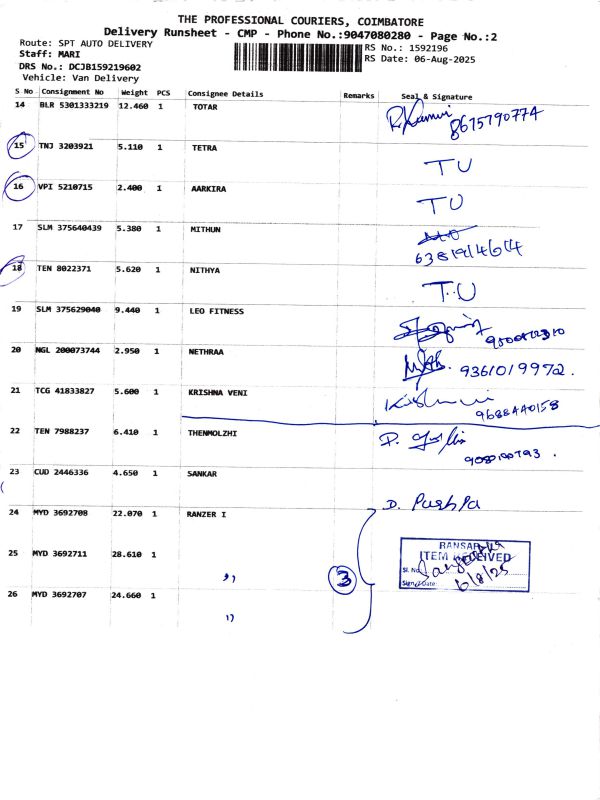 THE PROFESSIONAL COURIERS, COIMBATORE
Delivery Runsheet - CMP - Phone No.:9047080280 - Page No.:2
Route: SPT AUTO DELIVERY
RS No.: 1592196
Staff: MARI
RS Date: 06-Aug-2025
DRS No.: DCJB159219602
Vehicle: Van Delivery
S No Consignment No Weight PCS Consignee Details Remarks Seal & Signature
14 BLR 5301333219 12.460 1 TOTAR
8675790774
15 TNJ 3203921 5.110 1 TETRA TU
16 VPI 5210715 2.400 1 AARKIRA TU
17 SLM 375640439 5.380 1 MITHUN
18 TEN 8022371 5.620 1 NITHYA T.U
19 SLM 375629040 9.440 1 LEO FITNESS
20 NGL 200073744 2.950 1 NETHRAA 9361019972.
21 TCG 41833827 5.600 1 KRISHNA VENI
9688440158
22 TEN 7988237 6.410 1 THENMOLZHI
23 CUD 2446336 4.650 1 SANKAR
D. Pushpa
24 MYD 3692708 22.070 1 RANZER I
25 MYD 3692711 28.610 1 ,,
3
ITEM RECEIVED
Sl. No.
Sign / Date:
6/8/25
26 MYD 3692707 24.660 1 ,,